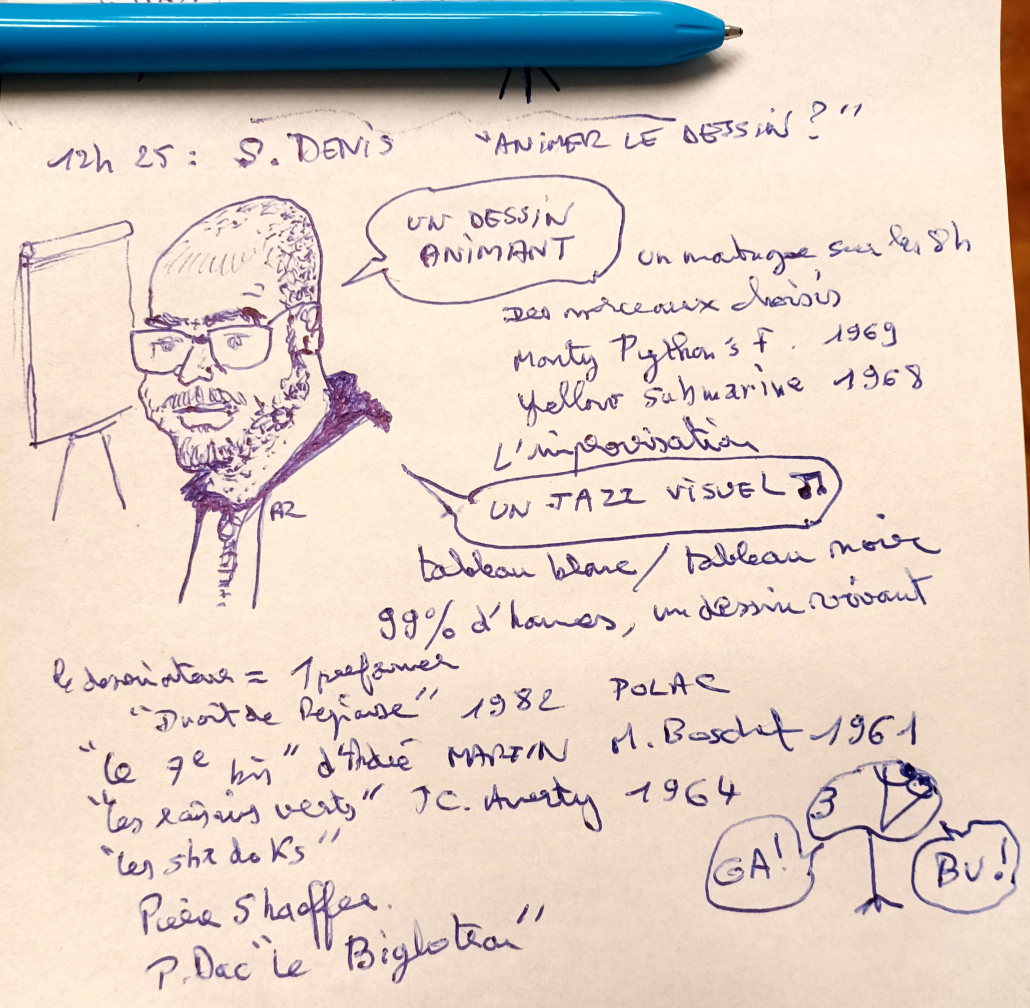 12h 25 : S. DENIS "ANIMER LE DESSIN ?"
UN DESSIN
ANIMANT
un matuge sur les 8h
Des morceaux choisis
Monty Python's F. 1969
Yellow submarine 1968
L'improvisation
UN JAZZ VISUEL
AZ
tableau blanc / tableau noir
99% d'homes, un dessin vivant
le dessinateur = 1 preformer
"Droit de Reponse" 1982 POLAC
"le 7e bis" d'André MARTIN M. Boschet 1961
"les raisins verts" JC. Averty 1964
"les shadoKs"
3
GA!
BU!
Pierre Shaeffer.
P. Dac "Le Bigloteau"